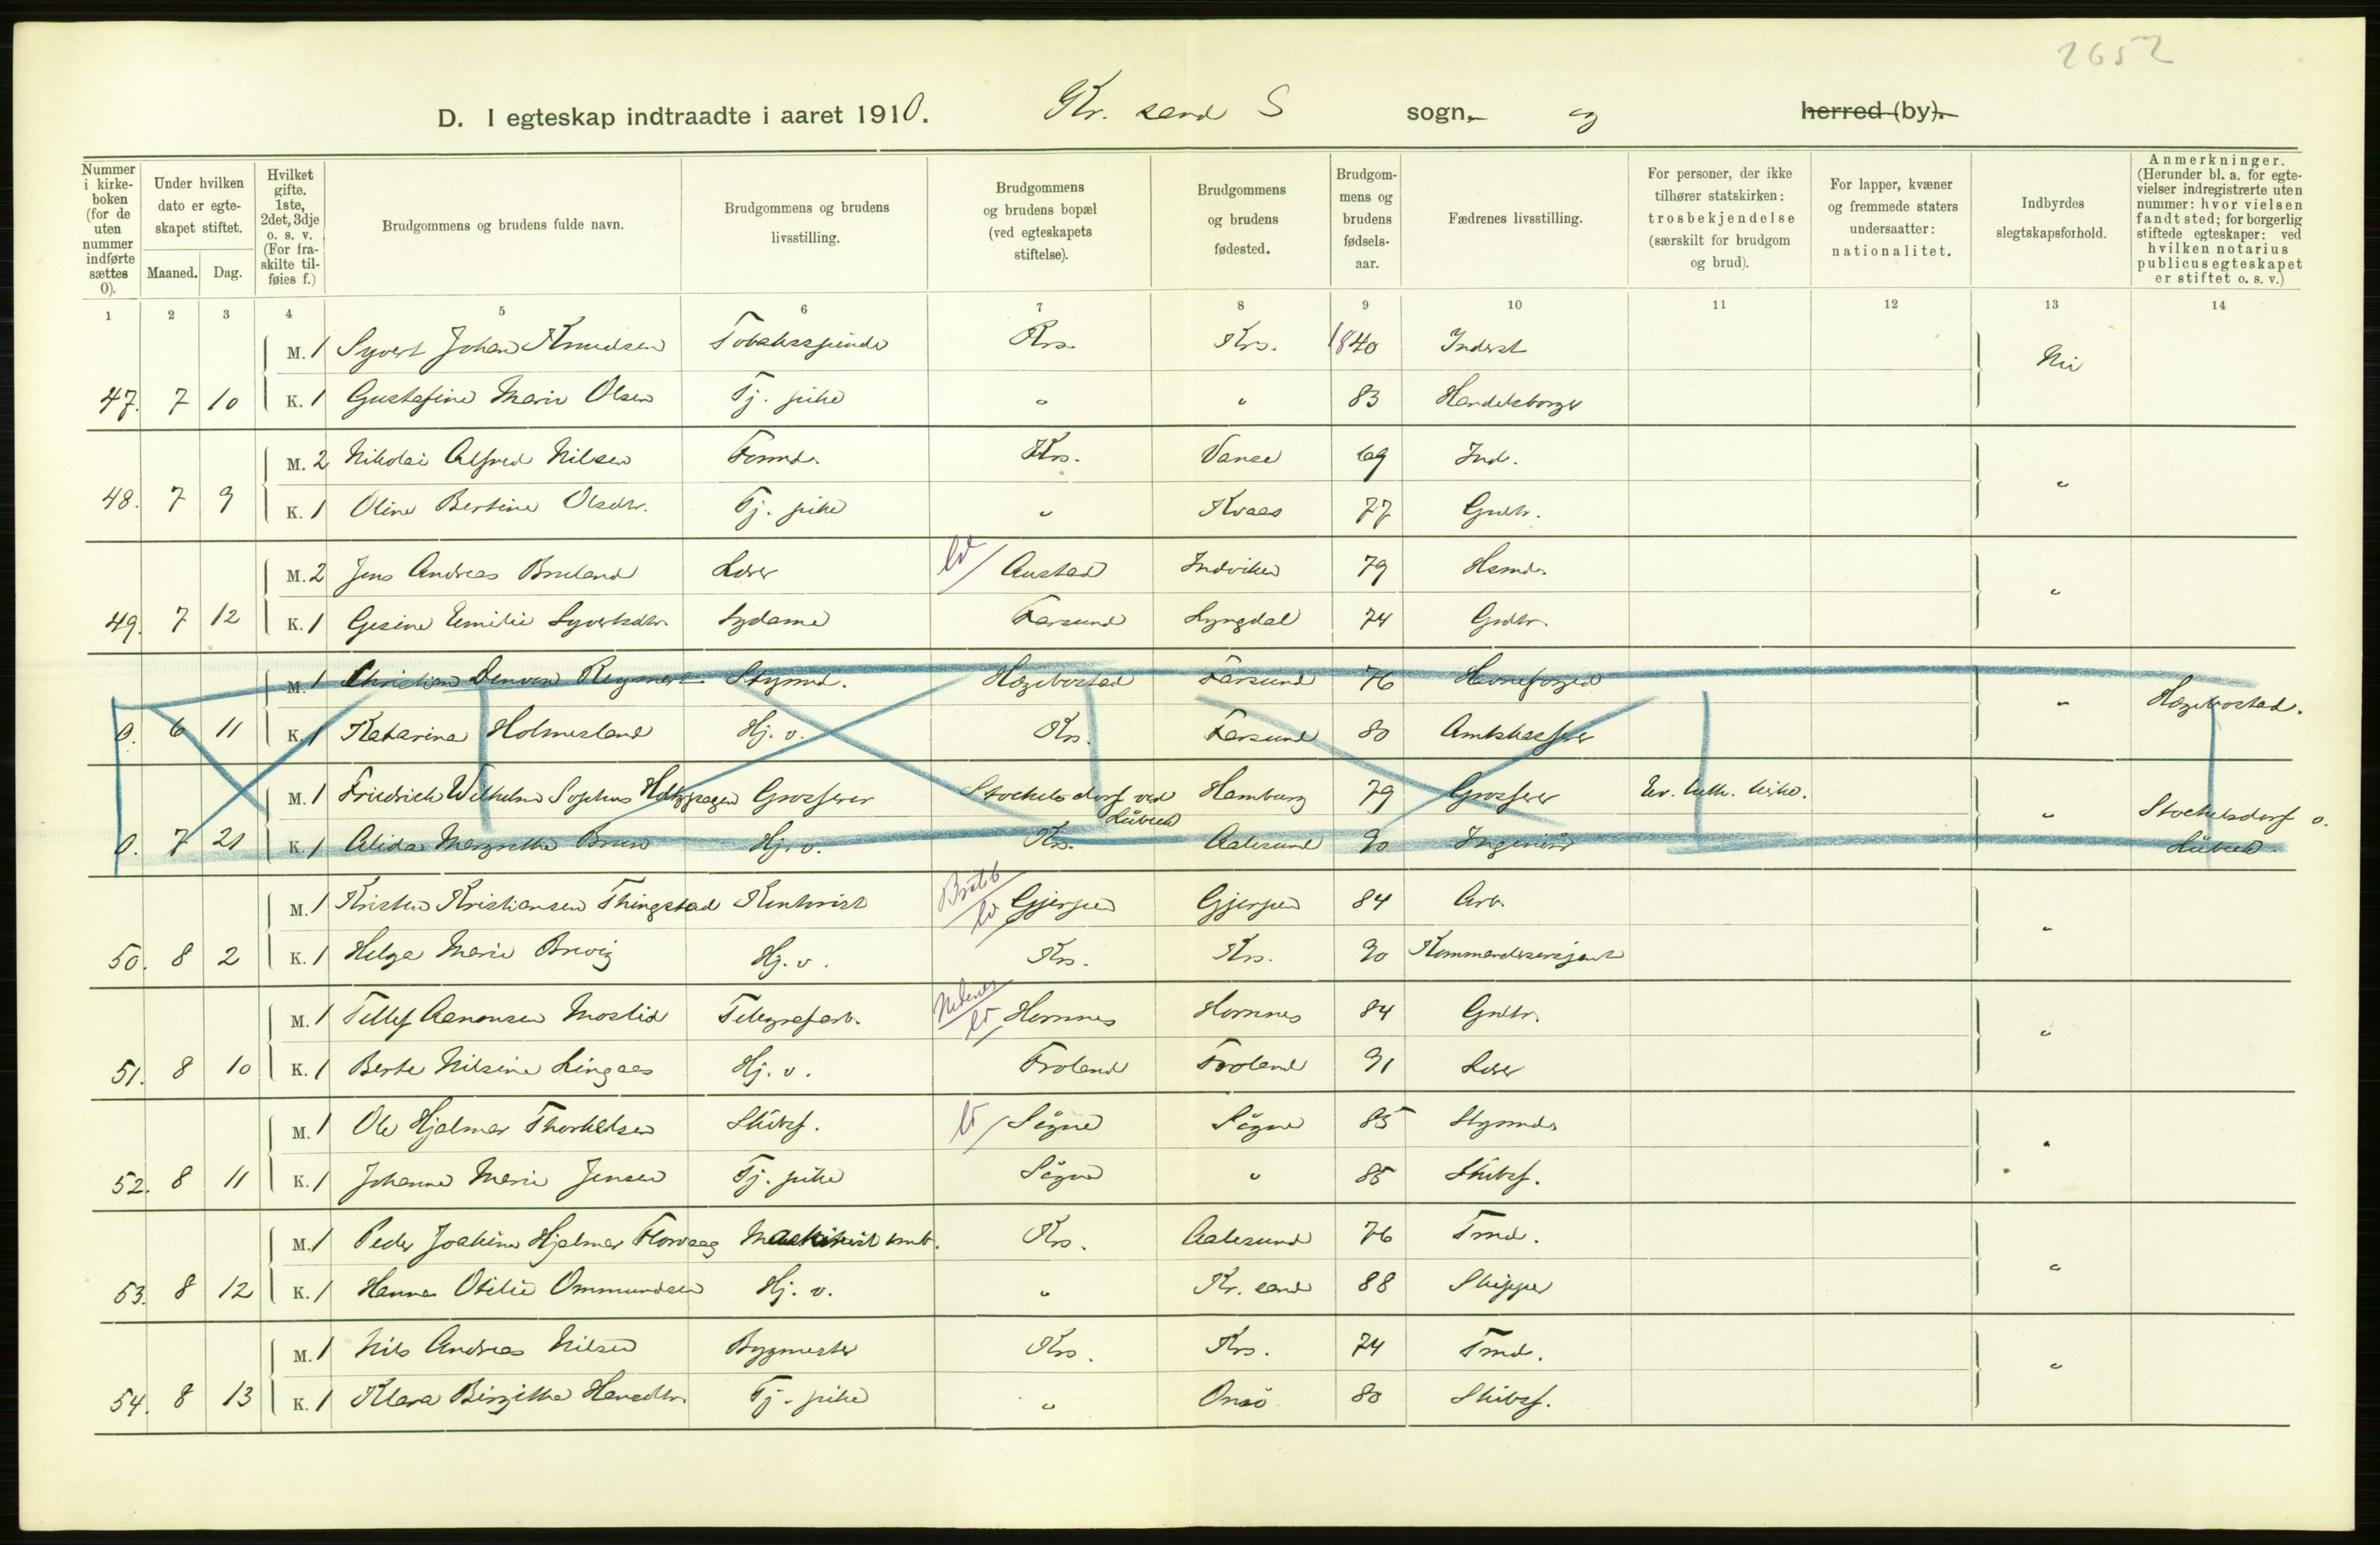 2652
D. I egteskap indtraadte i aaret 1910. Kr. sand S sogn. og herred (by).
Nummer i kirkeboken (for de uten nummer indførte sættes 0).
Under hvilken dato er egteskapet stiftet.
Maaned. Dag.
Hvilket gifte. 1ste, 2det, 3dje o. s. v. (For fraskilte tilføies f.)
Brudgommens og brudens fulde navn.
Brudgommens og brudens livsstilling.
Brudgommens og brudens bopæl (ved egteskapets stiftelse).
Brudgommens og brudens fødested.
Brudgommens og brudens fødselsaar.
Fædrenes livsstilling.
For personer, der ikke tilhører statskirken: trosbekjendelse (særskilt for brudgom og brud).
For lapper, kvæner og fremmede staters undersaatter: nationalitet.
Indbyrdes slegtskapsforhold.
Anmerkninger. (Herunder bl. a. for egtevielser indregistrerte uten nummer: hvor vielsen fandt sted; for borgerlig stiftede egteskaper: ved hvilken notarius publicus egteskapet er stiftet o. s. v.)
1 2 3 4 5 6 7 8 9 10 11 12 13 14
M. 1 Syvert Johan Knudsen Tobaksspinder Krs. Krs. 1840 Inderst Nei
47. 7 10 K. 1 Gustafine Marie Olsen Tj. pike " " 83 Handelsborger
M. 2 Nikolai Alfred Nilsen Formd. Krs. Vanse 69 Ind. "
48. 7 9 K. 1 Oline Bertine Olsdtr. Tj. pike " Kvaas 77 Grdbr.
M. 2 Jens Andreas Bruland Lærer Austad Indviken 79 Hsmd. "
49. 7 12 K. 1 Gesine Emilie Syvertsdtr. Sydame Farsund Lyngdal 74 Grdbr.
M. 1 Christian Reymert Styrmd. Hægebostad Farsund 76 Havnefoged " Hægebostad.
0. 6 11 K. 1 Katarina Holmesland Hj. v. Krs. Farsund 80 Amtskasserer
M. 1 Friedrich Wilhelm Sophus Grosserer Stockelsdorf ved Lübeck Hamburg 79 Grosserer Ev. luth. kirke. " Stockelsdorf v. Lübeck.
0. 7 21 K. 1 Alida Margrethe Brun Hj. v. Krs. Aalesund 90 Ingeniør
M. 1 Kristen Kristiansen Thingstad Kontorist Bratsb Gjerpen Gjerpen 84 Arb. "
50. 8 2 K. 1 Helga Marie Brevig Hj. v. Krs. Krs. 90 Kommandersergant
M. 1 Tellef Aanonsen Moslid Telegrafarb. Nedenes Hornnes Hornnes 84 Grdbr. "
51. 8 10 K. 1 Berte Nilsine Lingaas Hj. v. Froland Froland 91 Lærer
M. 1 Ole Hjalmar Thorkelsen Skibsf. Søgne Søgne 85 Styrmd. "
52. 8 11 K. 1 Johanne Marie Jensen Tj. pike Søgne " 85 Skibsf.
M. 1 Peder Joakim Hjalmar Florvaag Maskinist Krs. Aalesund 76 Tmd. "
53. 8 12 K. 1 Hanna Otilie Ommundsen Hj. v. " Kr. sand 88 Skipper
M. 1 Nils Andreas Nilsen Bygmester Krs. Krs. 74 Tmd. "
54. 8 13 K. 1 Klara Birgitha Hansdtr. Tj. pike " Onsø 80 Skibsf.